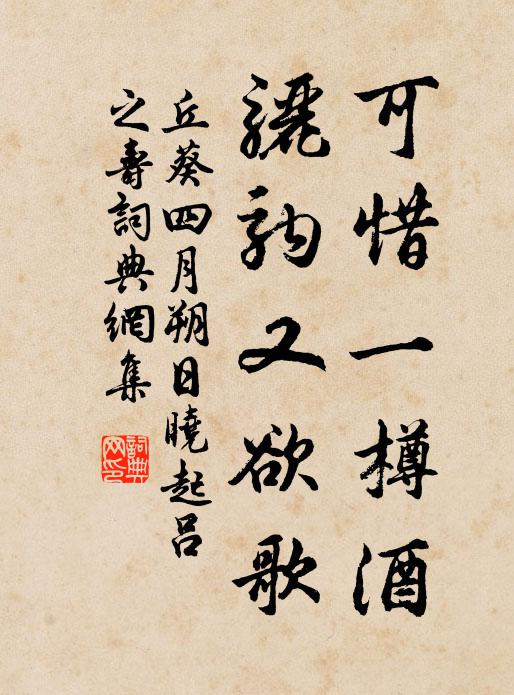 可惜一樽酒
驪駒又欲歌
丘葵四月朔日曉起呂
之壽詞典網集
詞典
网印